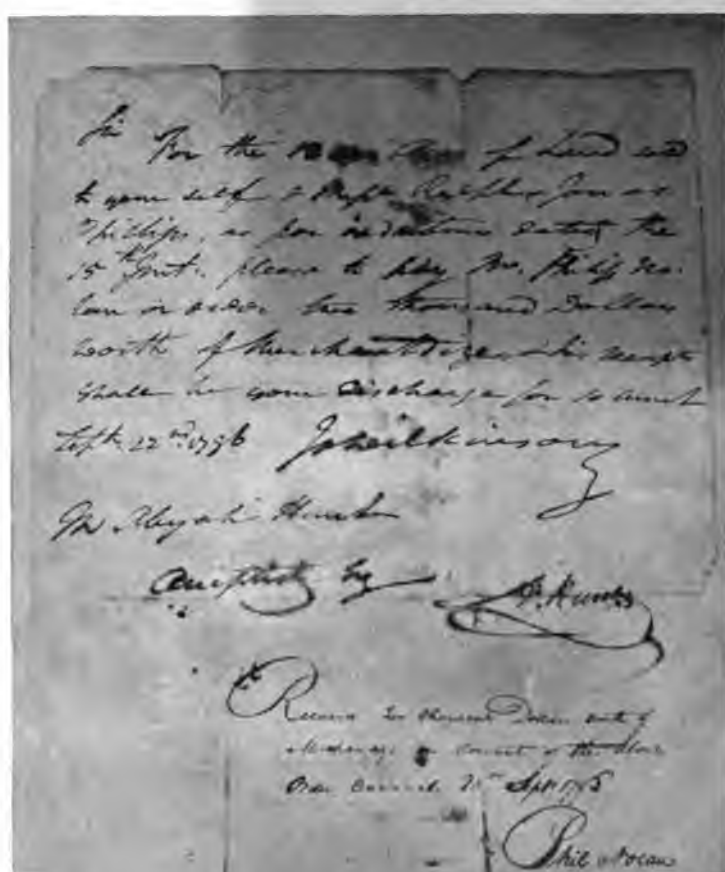 Sir For the of Land sold
to your self &
Phillips, as per indenture dated the
15th Inst. please to pay Mr. Philip No-
lan or order two thousand Dollars
worth of Merchandize & his receipt
shall be your Discharge for so much
Sept. 22nd. 1796 J Wilkinson
Mr Abijah Hunt
Accepted by A. Hunt
Received two thousand Dollars worth of
on of the above
Order Sept 1796
Phil Nolan